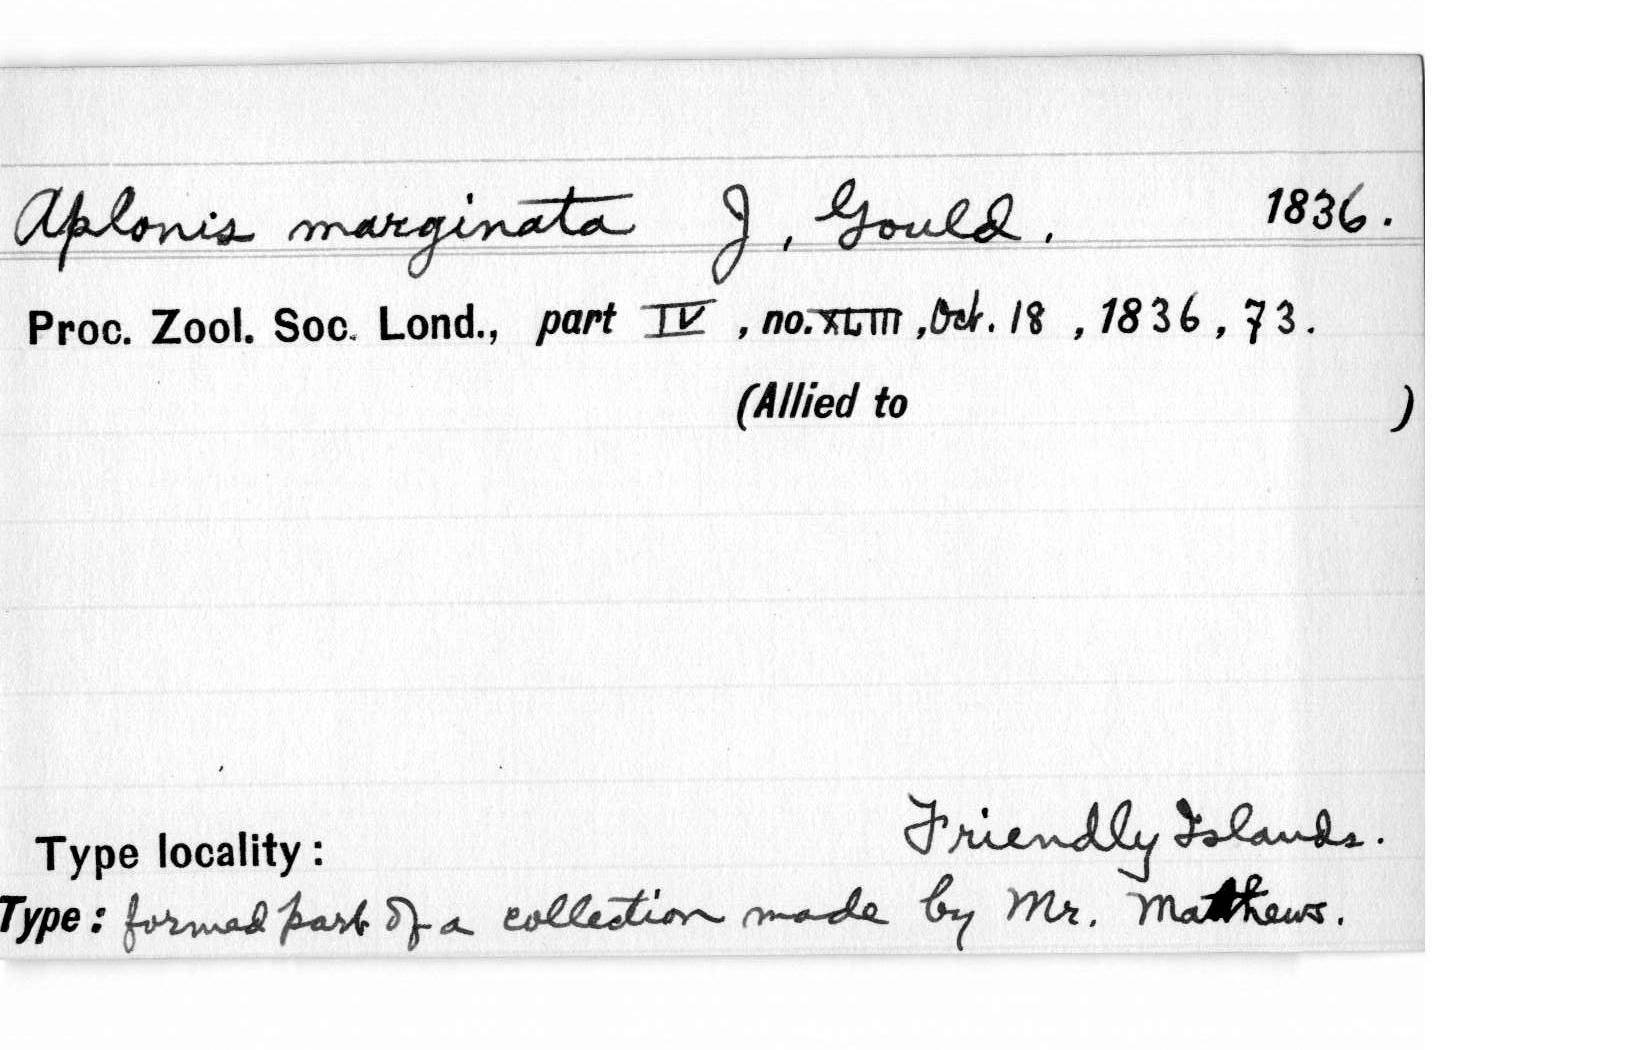 Aplonis marginata J. Gould. 1836.
Proc. Zool. Soc. Lond., part IV, no. XLIII, Oct. 18, 1836, 73.
(Allied to )
Type locality: Friendly Islands.
Type: formed part of a collection made by Mr. Matthews.